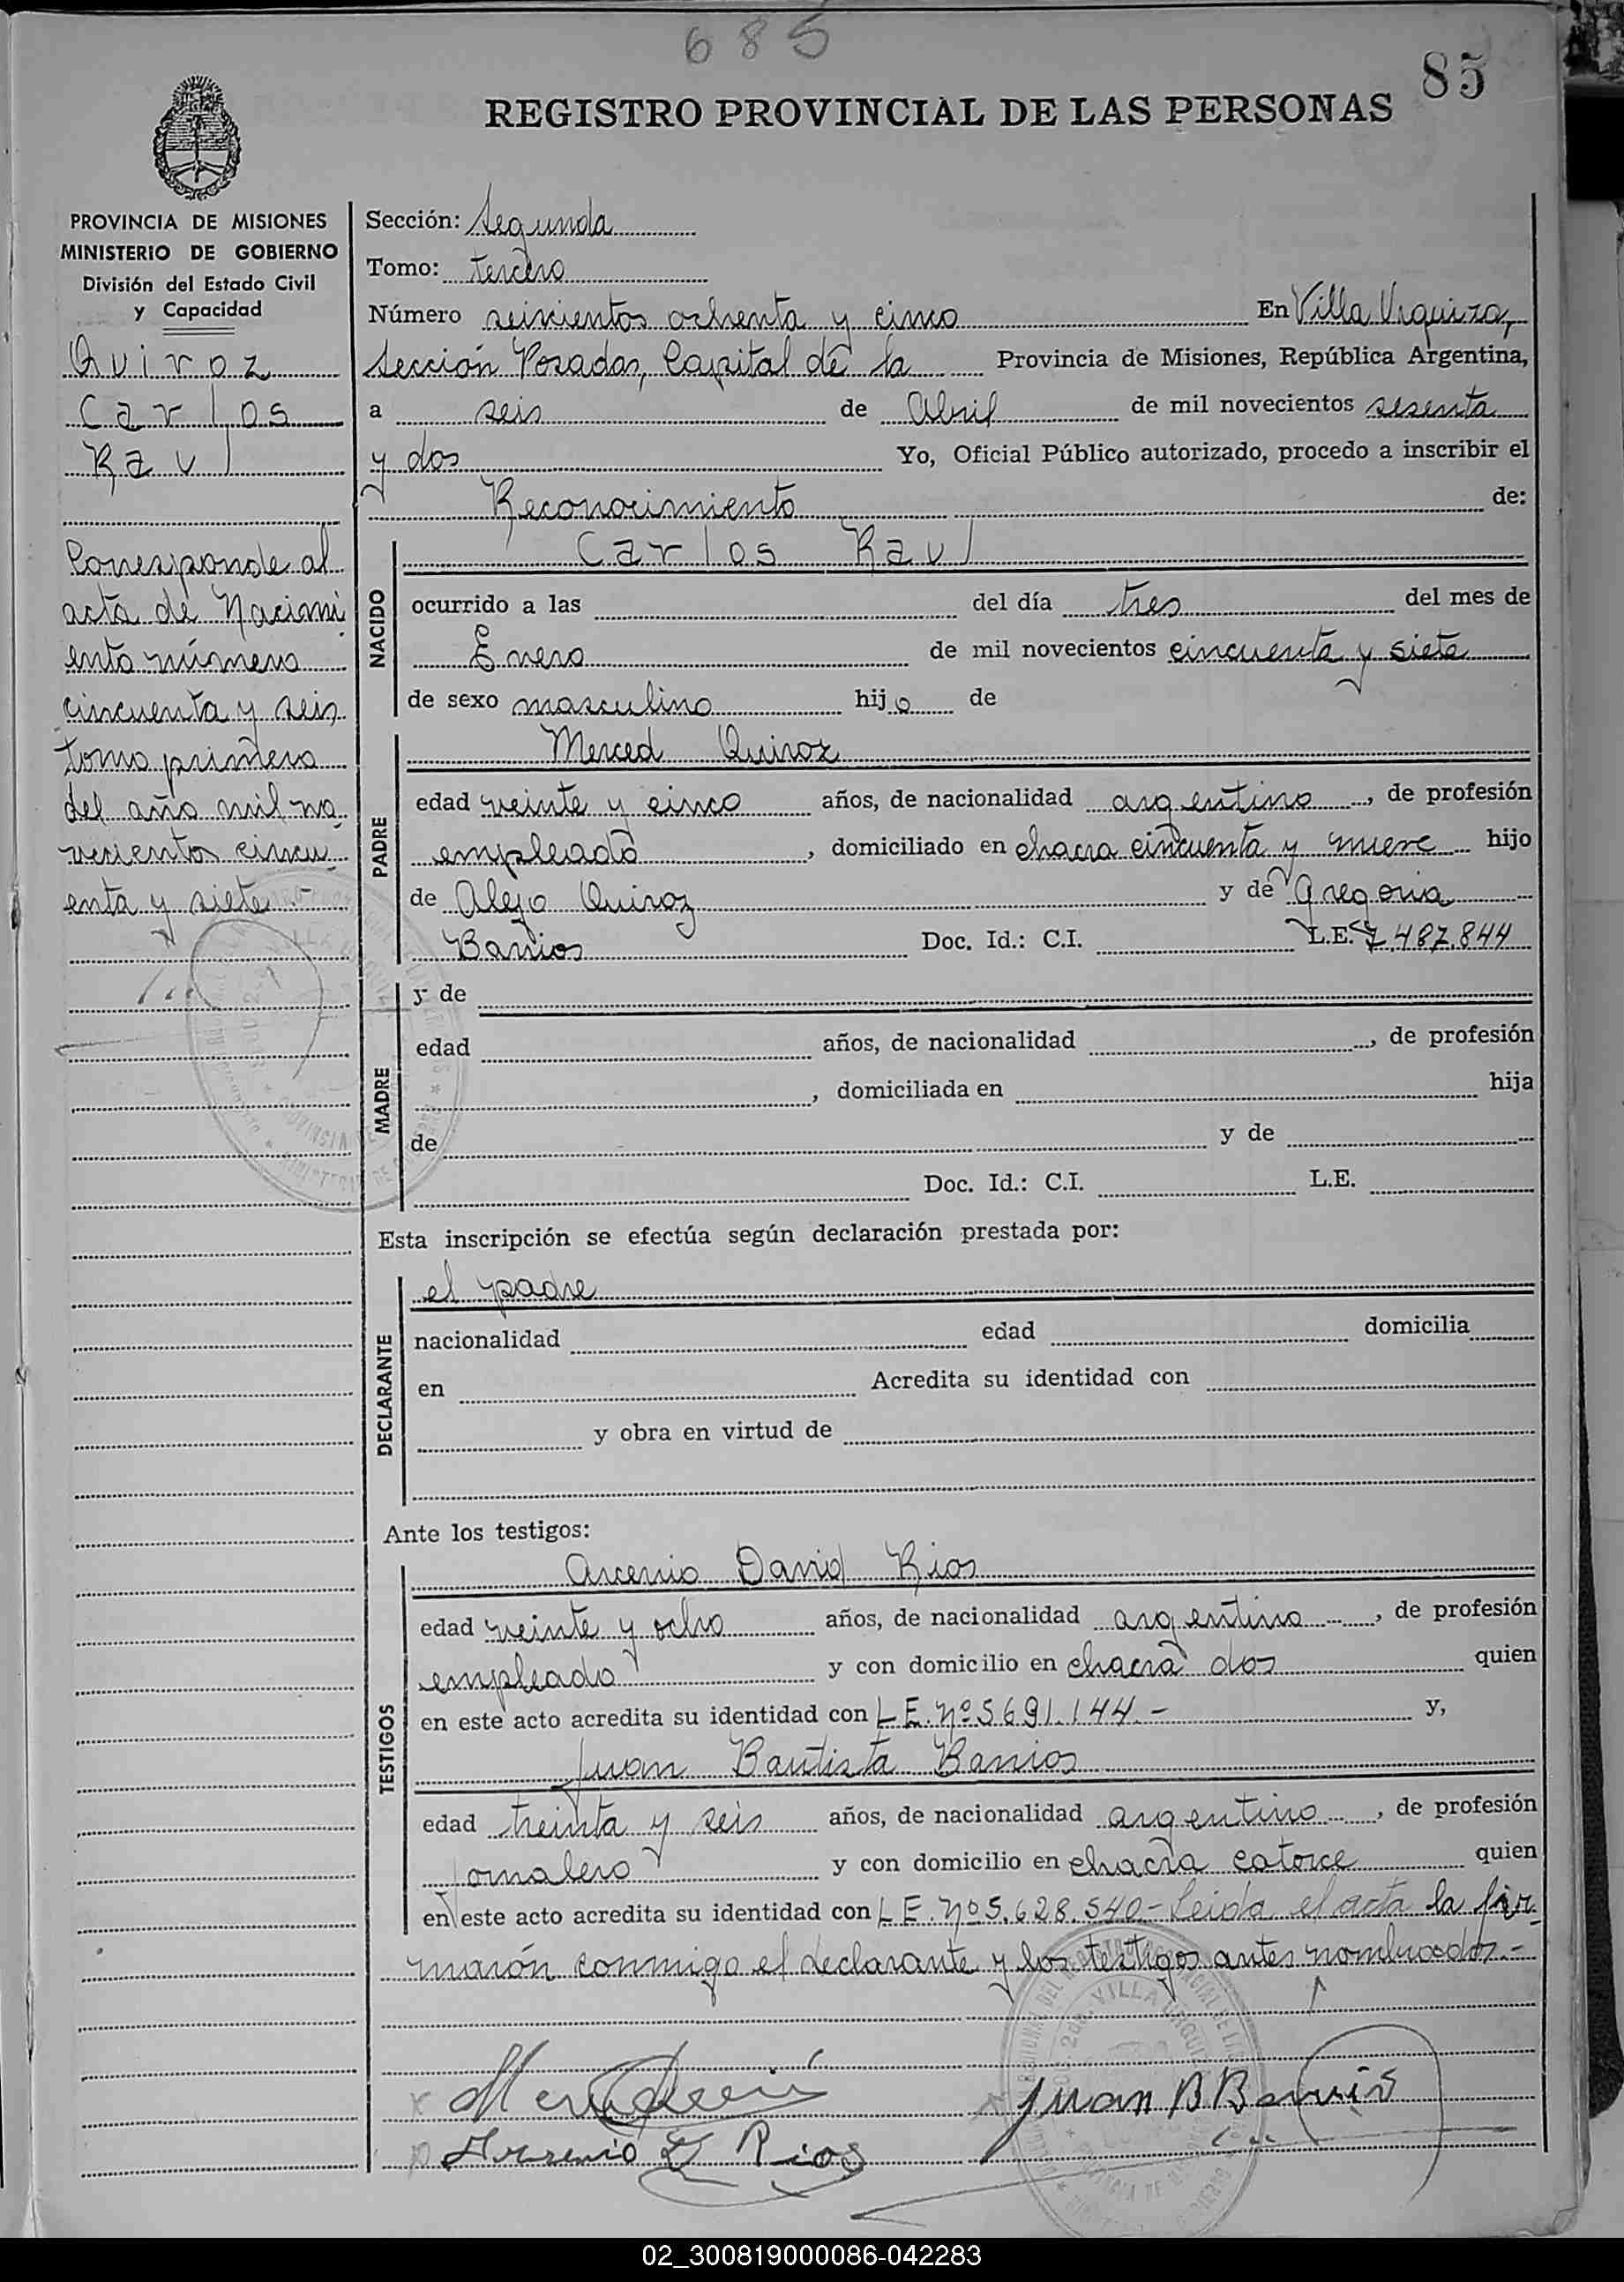 685
85
REGISTRO PROVINCIAL DE LAS PERSONAS
PROVINCIA DE MISIONES
MINISTERIO DE GOBIERNO
División del Estado Civil
y Capacidad
Quiroz
Carlos
Raul
Corresponde al
acta de Nacimi
ento número
cincuenta y seis
tomo primero
del año mil no
vecientos cincu
enta y siete -
Sección: Segunda
Tomo: tercero
Número seiscientos ochenta y cinco En Villa Urquiza,
Sección Posadas, Capital de la Provincia de Misiones, República Argentina,
a seis de Abril de mil novecientos sesenta
y dos Yo, Oficial Público autorizado, procedo a inscribir el
Reconocimiento de:
NACIDO
Carlos Raul
ocurrido a las del día tres del mes de
Enero de mil novecientos cincuenta y siete
de sexo masculino hijo de
PADRE
Merced Quiroz
edad veinte y cinco años, de nacionalidad argentino, de profesión
empleado, domiciliado en chacra cincuenta y nueve hijo
de Alejo Quiroz y de Gregoria
Barrios Doc. Id.: C.I. L.E. 7.487.844
MADRE
y de
edad años, de nacionalidad , de profesión
, domiciliada en hija
de y de
Doc. Id.: C.I. L.E.
Esta inscripción se efectúa según declaración prestada por:
DECLARANTE
el padre
nacionalidad edad domicilia
en Acredita su identidad con
y obra en virtud de
Ante los testigos:
TESTIGOS
Arcenio David Rios
edad veinte y ocho años, de nacionalidad argentino, de profesión
empleado y con domicilio en chacra dos quien
en este acto acredita su identidad con L.E. Nº 5691.144.- y,
Juan Bautista Barrios
edad treinta y seis años, de nacionalidad argentino, de profesión
Jornalero y con domicilio en chacra catorce quien
en este acto acredita su identidad con L.E. Nº 5.628.540- Leida el acta la fir
marón conmigo el declarante y los testigos antes nombrados.-
Juan B Barrios
Arsenio D Rios
02_300819000086-042283